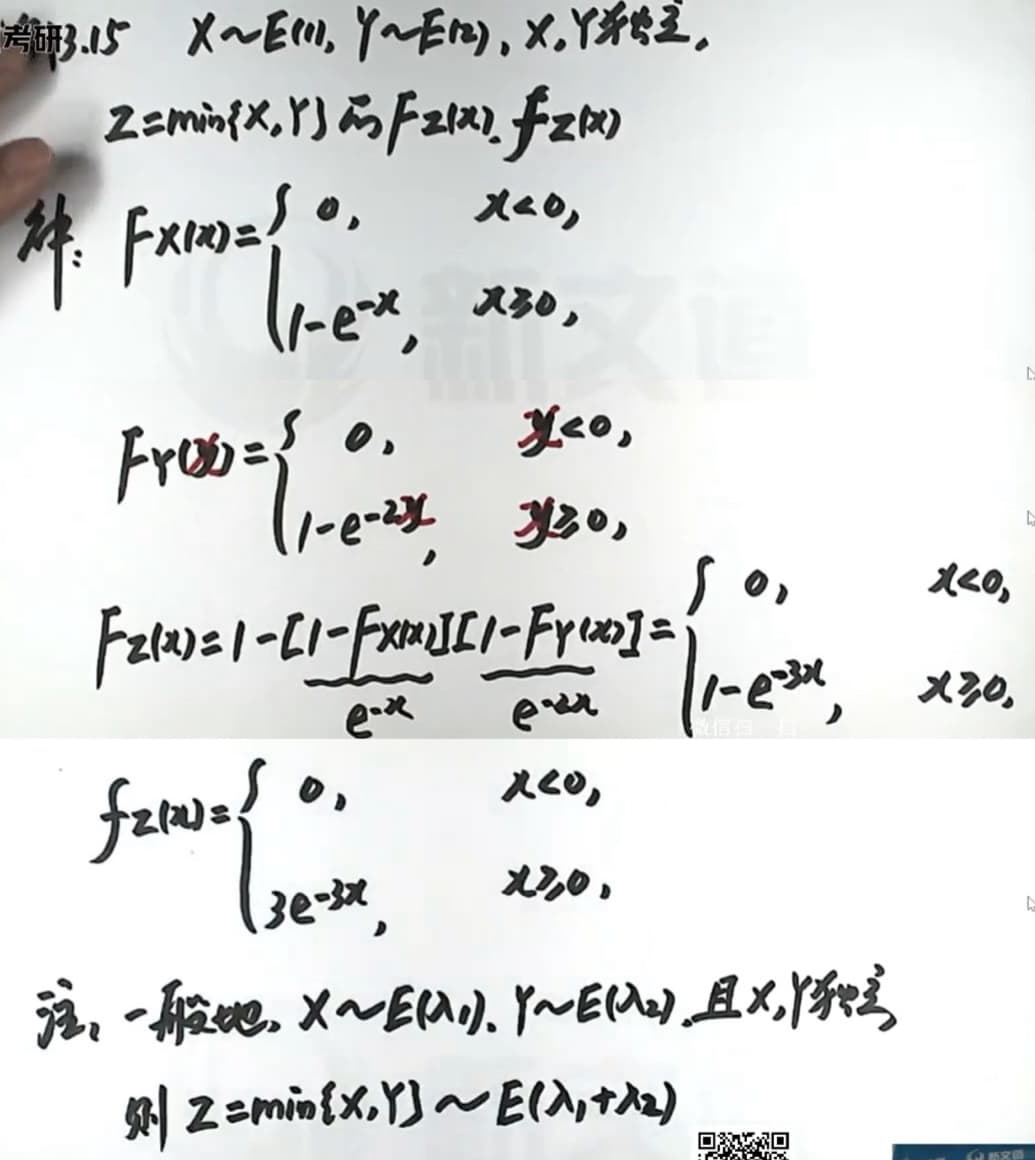 考研3.15 X~E(1), Y~E(2), X,Y独立,
Z=min{X,Y}的F_Z(x), f_Z(x)
解: F_X(x)={ 0, x<0,
1-e^{-x}, x≥0,
F_Y(y)={ 0, y<0,
1-e^{-2y}, y≥0,
F_Z(x)=1-[1-F_X(x)][1-F_Y(x)]={ 0, x<0,
e^{-x} e^{-2x} 1-e^{-3x}, x≥0,
微信扫一扫
f_Z(x)={ 0, x<0,
3e^{-3x}, x≥0,
注, 一般地, X~E(λ₁), Y~E(λ₂), 且X,Y独立,
则 Z=min{X,Y}~E(λ₁+λ₂)
新文道